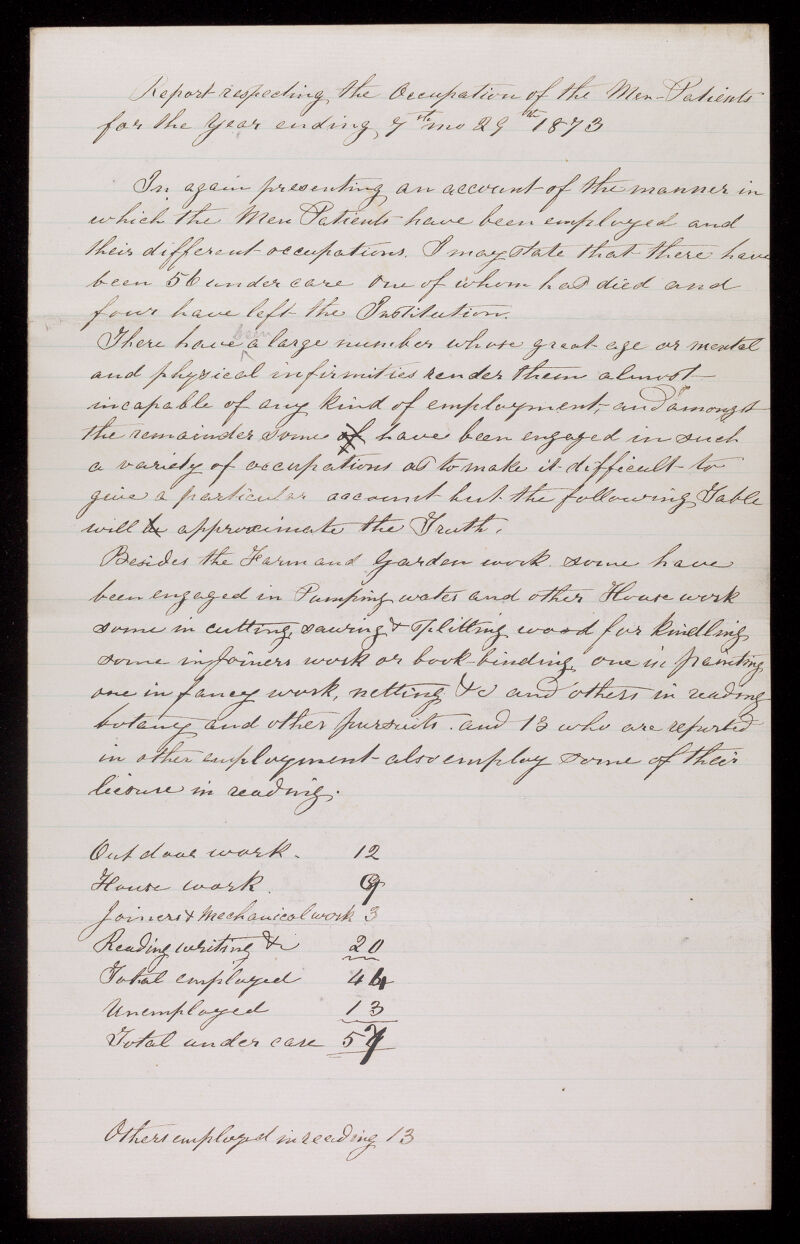 Report respecting the Occupation of the Men-Patients
for the Year ending 7th mo 29th 1873
In again presenting an account of the manner in
which the Men Patients have been employed and
their different occupations. I may state that there have
been 56 under care one of whom had died and
four have left the Institution.
There have been a large number whose great age or mental
and physical infirmities render them almost
incapable of any kind of employment, and amongst
the remainder some of have been engaged in such
a variety of occupations as to make it difficult to
give a particular account but the following Table
will be approximate the Truth.
Besides the Farm and Garden work some have
been engaged in Pumping water and other House work
some in cutting, sawing & splitting wood for kindling
some in Joiners work or book-binding one in painting
one in fancy work, netting &c and others in reading
botany and other pursuits. and 13 who are reported
in other employment also employ some of their
liesure in reading.
Out door work. 12
House work. 9
Joiners & Mechanical work 3
Reading writing &c 20
Total employed 44
Unemployed 13
Total under care 57
Others employed in reading 13